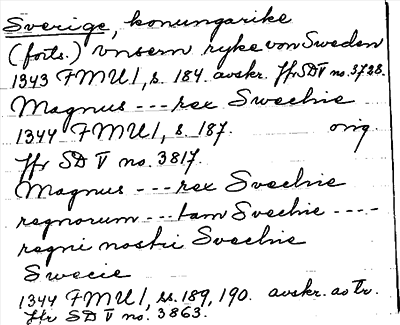 Sverige, konungarike
(forts.) vnsem ryke von Sweden
1343 FMU I, s. 184. avskr. Jfr SD V no. 3728.
Magnus --- rex Swechie
1344 FMU I, s. 187. orig.
Jfr SD V no. 3817.
Magnus --- rex Svechie
regnorum --- tam Svechie ----
regni nostri Svechie
Swecie
1344 FMU I, ss. 189, 190. avskr. as tr.
Jfr SD V no. 3863.